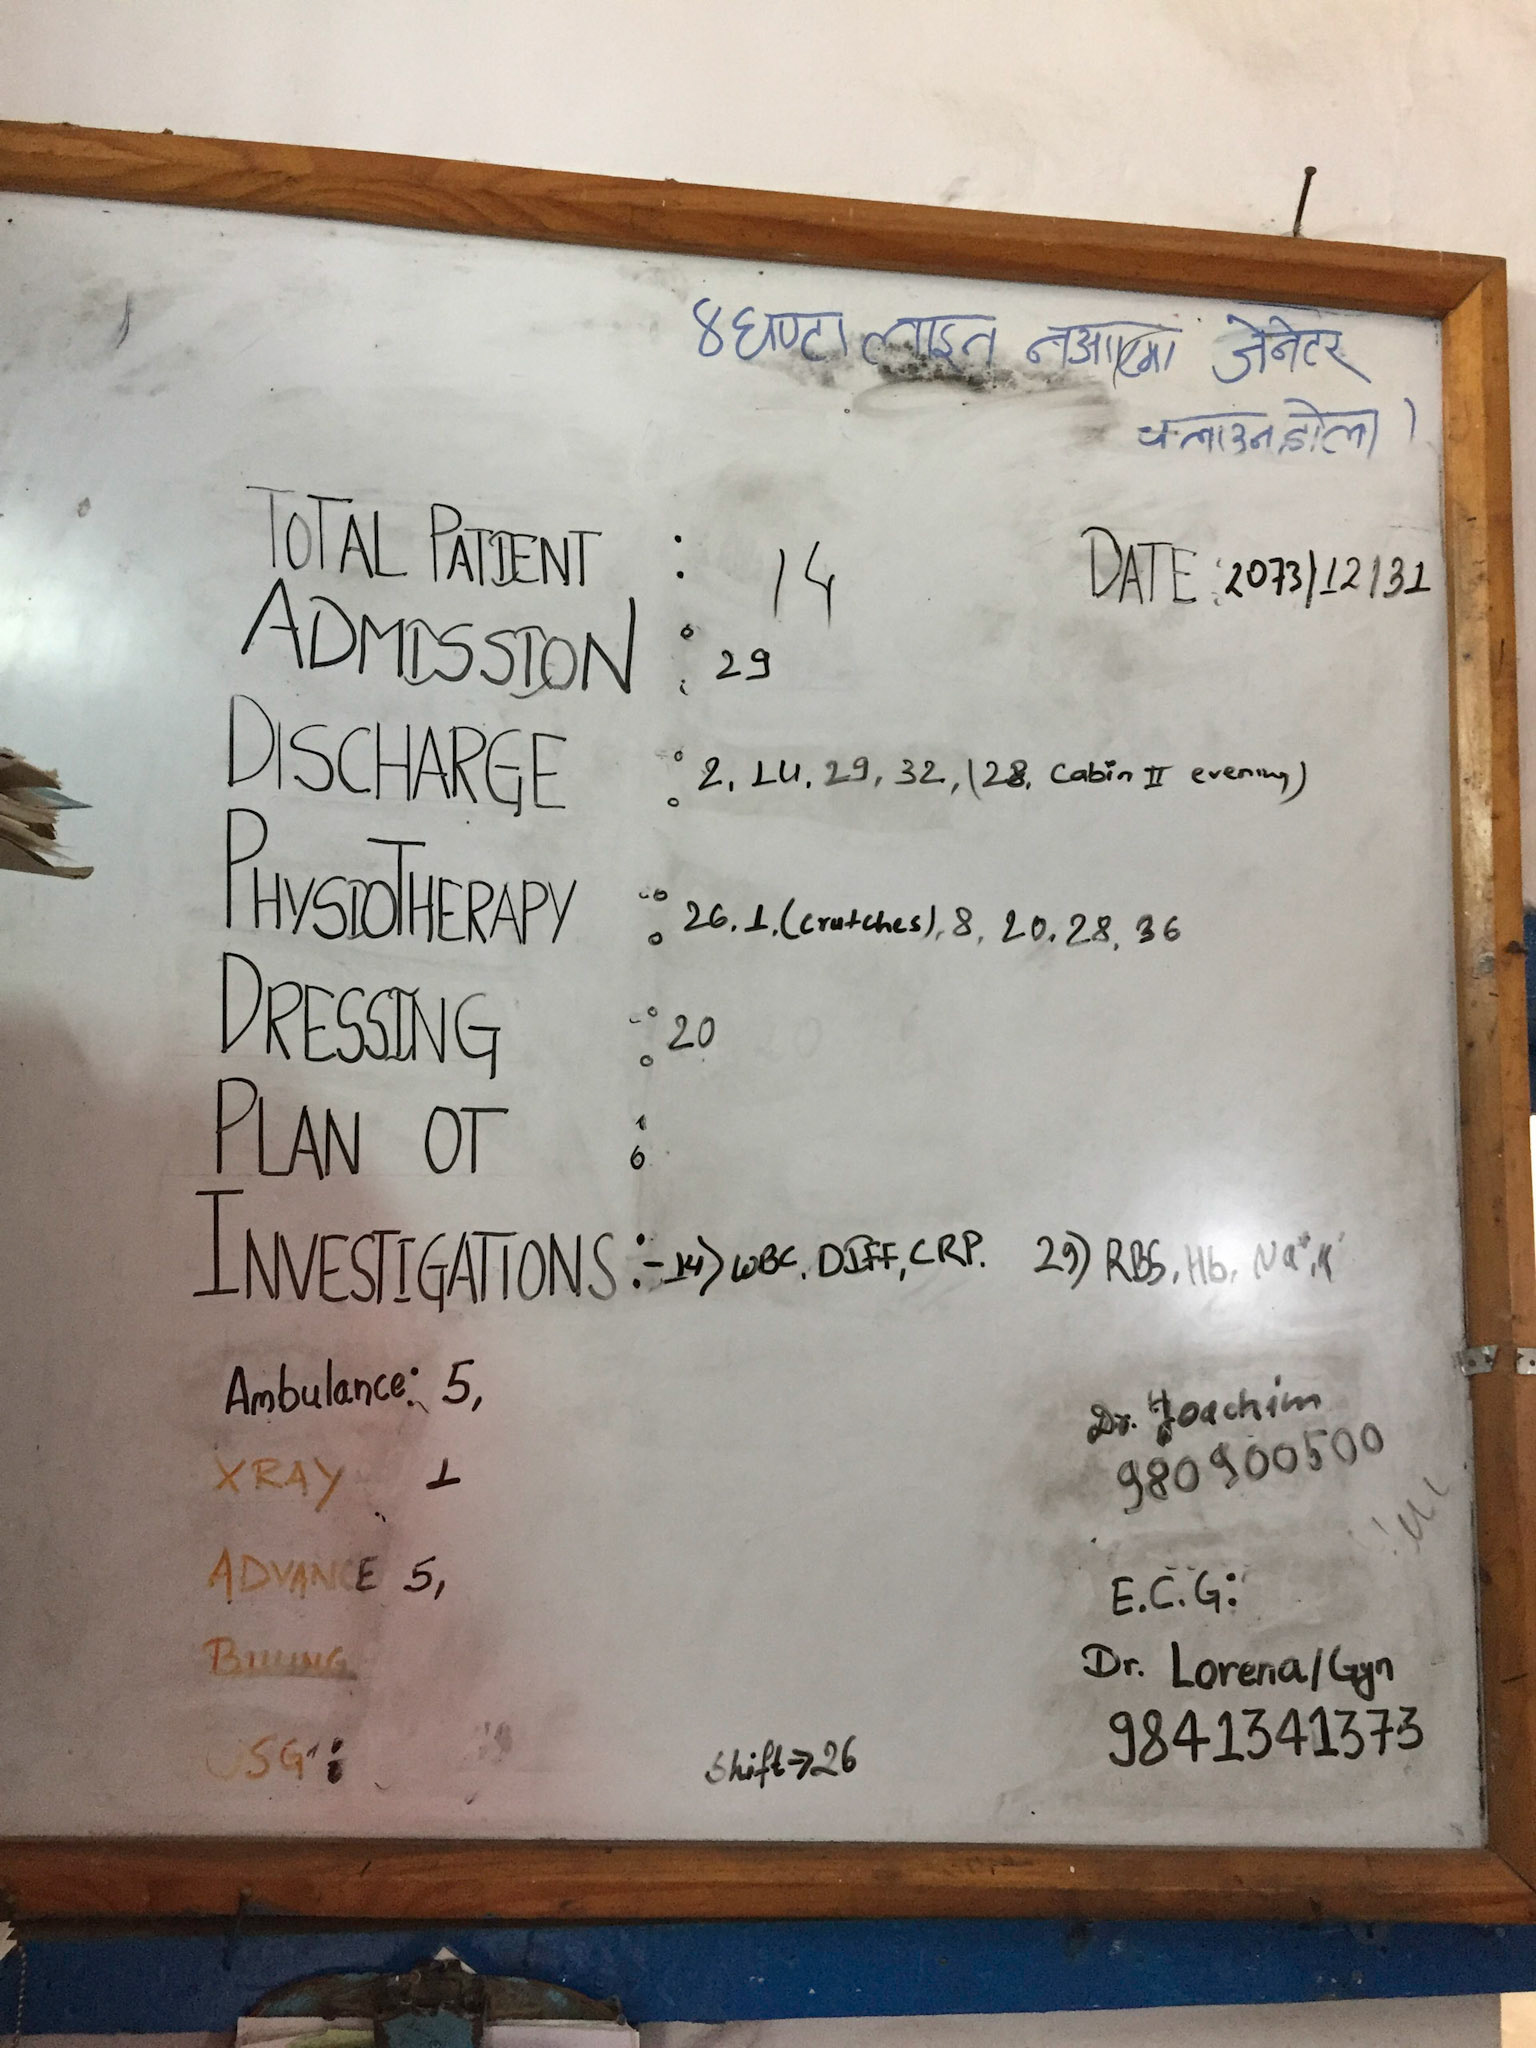 ४ घण्टा लाइन नआएमा जेनेटर
चलाउनु होला।
TOTAL PATIENT : 14
DATE : 2073/12/31
ADMISSION : 29
DISCHARGE : 2, 14, 29, 32, (28, Cabin II evening)
PHYSIOTHERAPY : 26, 1, (crutches), 8, 20, 28, 36
DRESSING : 20
PLAN OT :
INVESTIGATIONS :- 14) WBC, DIFF, CRP. 29) RBS, Hb, Na+, K+
Ambulance: 5,
XRAY 1
ADVANCE 5,
BILLING
USG :
Shift → 26
Dr. Joachim
980900500
E.C.G:
Dr. Lorena/Gyn
9841341373